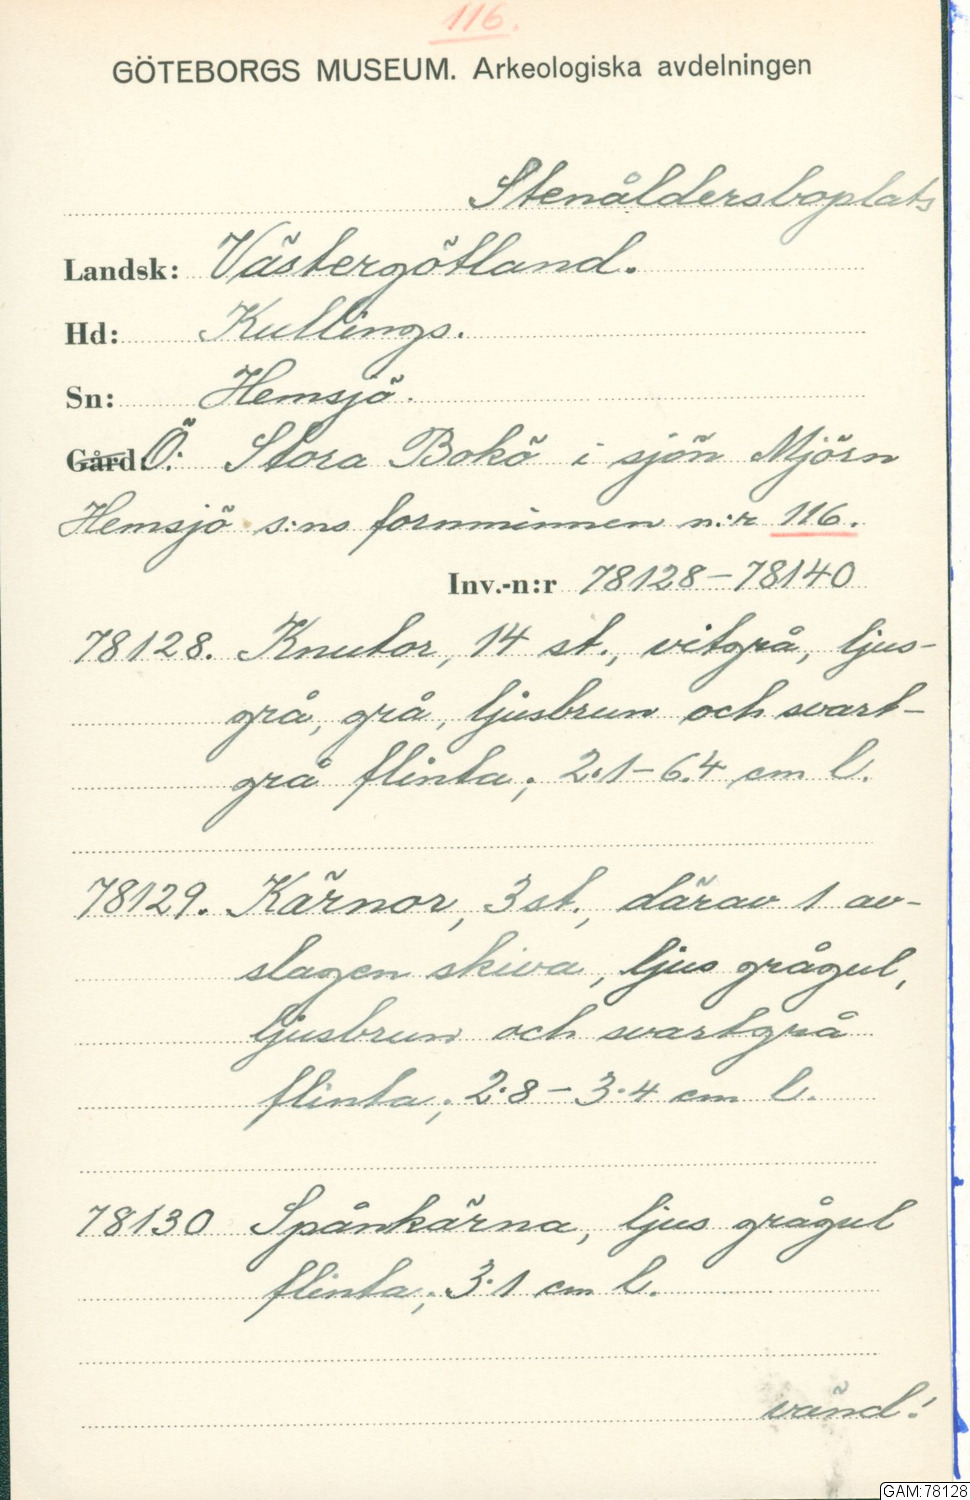 116.
GÖTEBORGS MUSEUM. Arkeologiska avdelningen
Stenåldersboplats
Landsk: Västergötland.
Hd: Kullings.
Sn: Hemsjö.
Gård: Ö: Stora Bokö i sjön Mjörn
Hemsjö s:ns fornminnen n:r 116.
Inv.-n:r 78128-78140
78128. Knutor, 14 st., vitgrå, ljus-
grå, grå, ljusbrun och svart-
grå flinta; 2.1-6.4 cm l.
78129. Kärnor, 3 st., därav 1 av-
slagen skiva, ljus grågul,
ljusbrun och svartgrå
flinta; 2.8-3.4 cm l.
78130 Spånkärna, ljus grågul
flinta; 3.1 cm l.
vänd!
GAM:78128